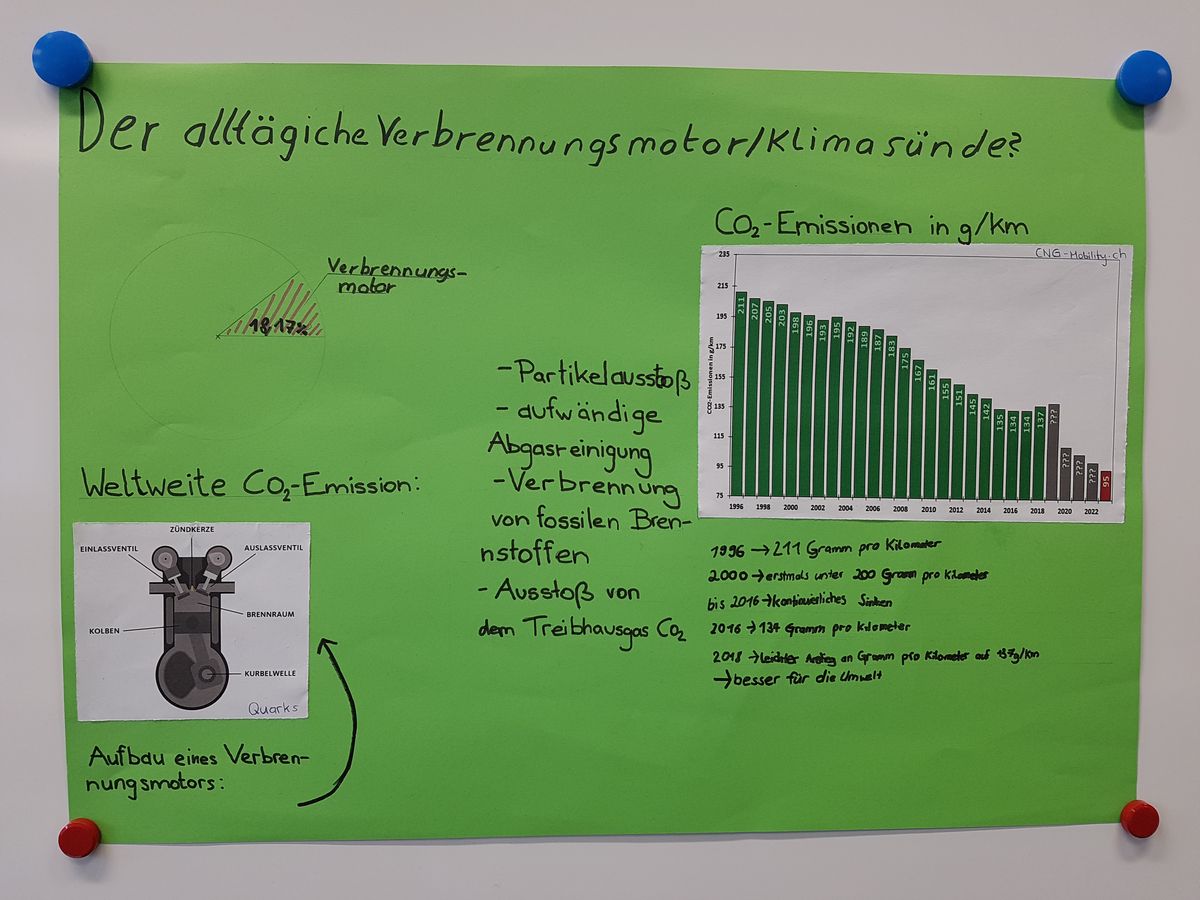 Der alltägiche Verbrennungsmotor/Klimasünde?
Verbrennungs-
motor
18,17%
Weltweite CO₂-Emission:
ZÜNDKERZE
EINLASSVENTIL
AUSLASSVENTIL
BRENNRAUM
KOLBEN
KURBELWELLE
Quarks
Aufbau eines Verbren-
nungsmotors:
- Partikelausstoß
- aufwändige
Abgasreinigung
- Verbrennung
von fossilen Bren-
nstoffen
- Ausstoß von
dem Treibhausgas CO₂
CO₂-Emissionen in g/km
CNG-Mobility.ch
CO2-Emissionen in g/km
235
215
195
175
155
135
115
95
75
211 207 205 203 198 196 193 195 192 189 187 183 175 167 161 155 151 145 142 135 134 134 137 ??? ??? ??? ??? 95
1996 1998 2000 2002 2004 2006 2008 2010 2012 2014 2016 2018 2020 2022
1996 → 211 Gramm pro Kilometer
2000 → erstmals unter 200 Gramm pro Kilometer
bis 2016 → kontinuierliches Sinken
2016 → 134 Gramm pro Kilometer
2018 → leichter Anstieg an Gramm pro Kilometer auf 137g/km
→ besser für die Umwelt